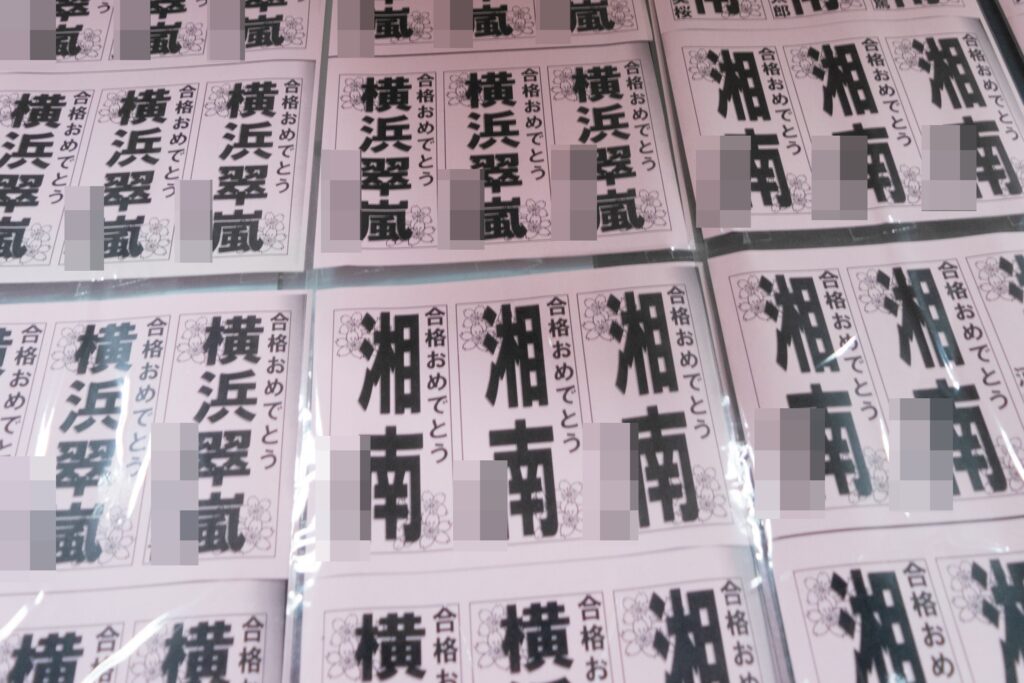 嵐
嵐
嵐
嵐
嵐
嵐
合格おめでとう
横浜翠嵐
合格おめでとう
横浜翠嵐
合格おめでとう
横浜翠嵐
合格おめでとう
横浜翠嵐
合格おめでとう
横浜翠嵐
合格おめでとう
横浜翠嵐
合格おめでとう
湘南
合格おめでとう
湘南
合格おめでとう
湘南
合格おめでとう
合格おめでとう
横浜翠嵐
合格おめでとう
横浜翠嵐
合格おめでとう
湘南
合格おめでとう
湘南
合格おめでとう
湘南
合格おめでとう
湘南
合格おめでとう
湘南
合格
横
合格
横
合格お
横
合格お
横
合格おめ
湘
合格おめ
湘
湘